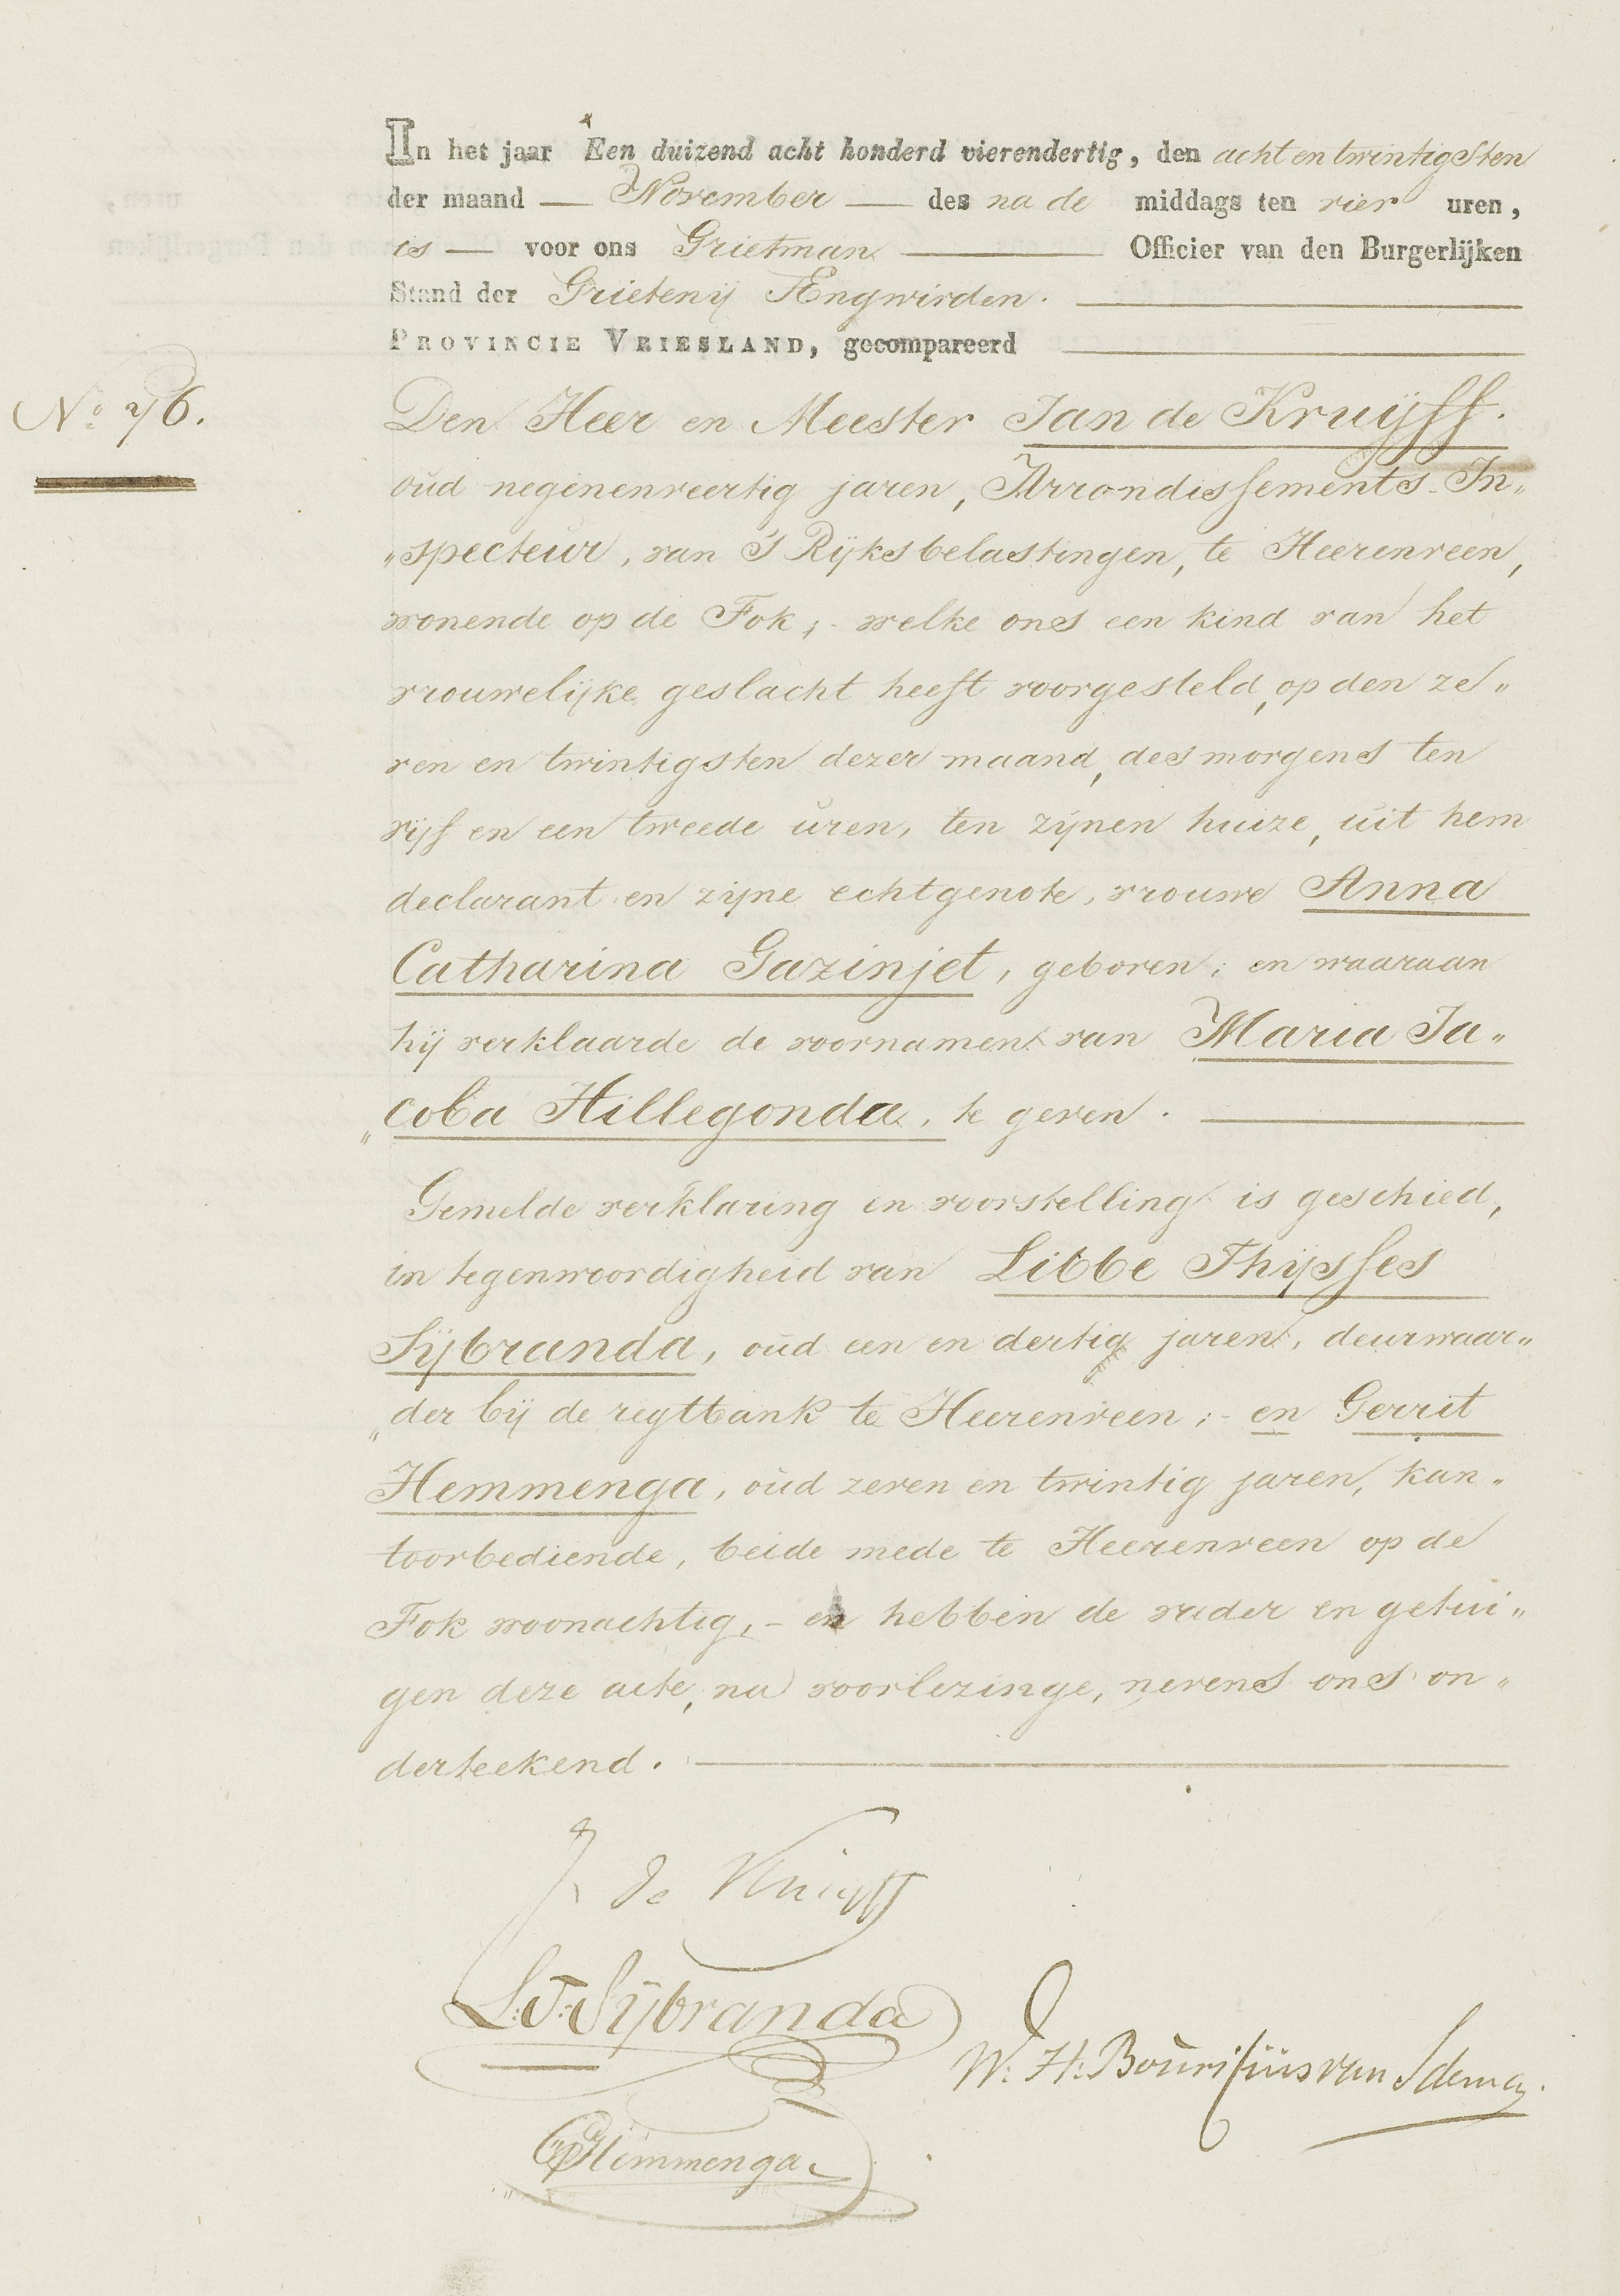 In het jaar Een duizend acht honderd vierendertig, den acht en twintigsten
der maand — November — des na de middags ten vier uren,
is — voor ons Grietman — Officier van den Burgerlijken
Stand der Grietenij Ængwirden.
PROVINCIE VRIESLAND, gecompareerd
No. 76.
Den Heer en Meester Jan de Kruijff.
oud negenenveertig jaren, Arrondissements-In„
„specteur, van 's Rijksbelastingen, te Heerenveen,
wonende op de Fok; - welke ons een kind van het
vrouwelijke geslacht heeft voorgesteld, op den ze„
ven en twintigsten dezer maand, des morgens ten
vijf en een tweede uren, ten zijnen huize, uit hem
declarant en zijne echtgenote, vrouwe Anna
Catharina Gazinjet, geboren; en waaraan
hij verklaarde de voornamen van Maria Ja„
„coba Hillegonda, te geven.
Gemelde verklaring en voorstelling is geschied,
in tegenwoordigheid van Libbe Thijsses
Sijbranda, oud een en dertig jaren, deurwaar„
„der bij de regtbank te Heerenveen; - en Gerrit
Hemmenga, oud zeven en twintig jaren, kan„
toorbediende, beide mede te Heerenveen op de
Fok woonachtig, - en hebben de vader en getui„
gen deze acte, na voorlezinge, nevens ons on„
derteekend.
J de Kruijff
L:T:Sijbranda
W: H: Bouricius van Idema
G Hemmenga